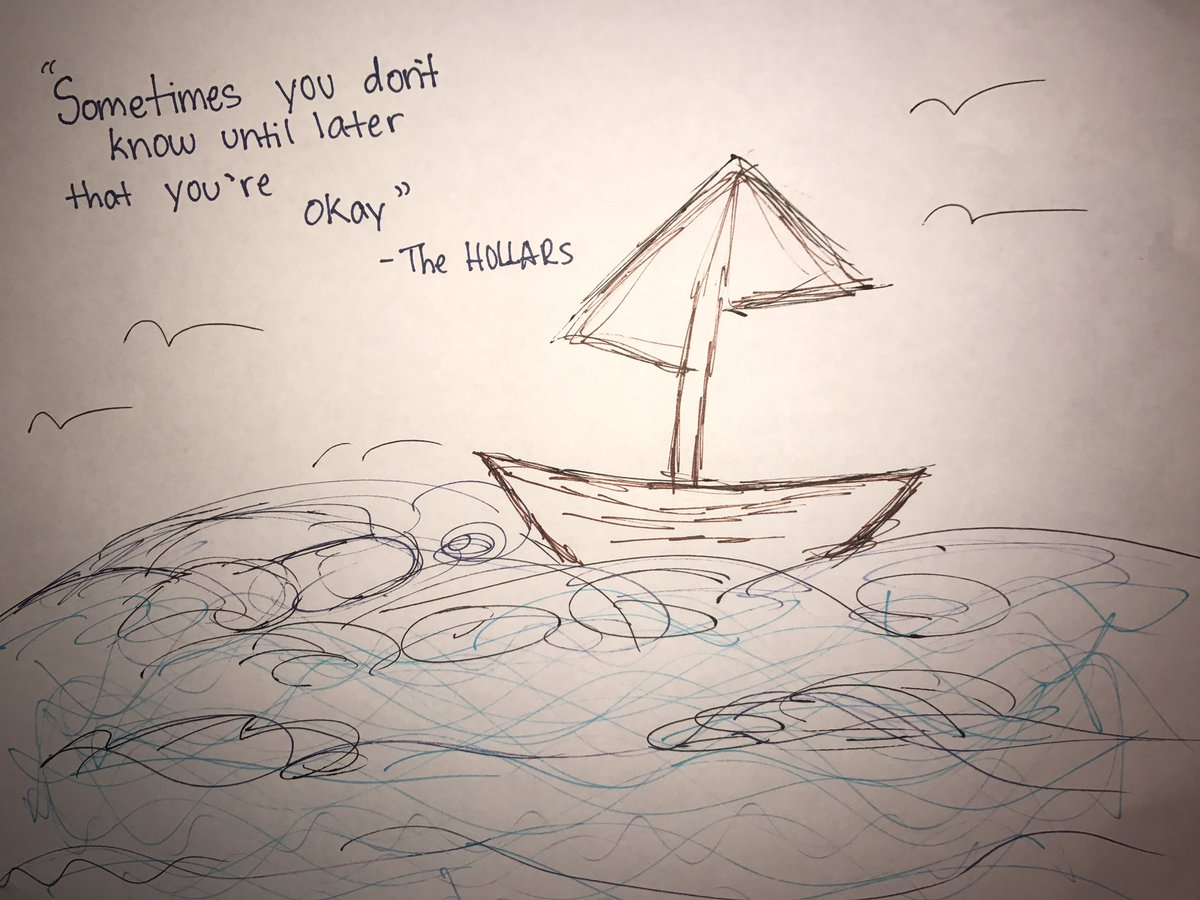 “Sometimes you don't
know until later
that you're
okay”
- The HOLLARS